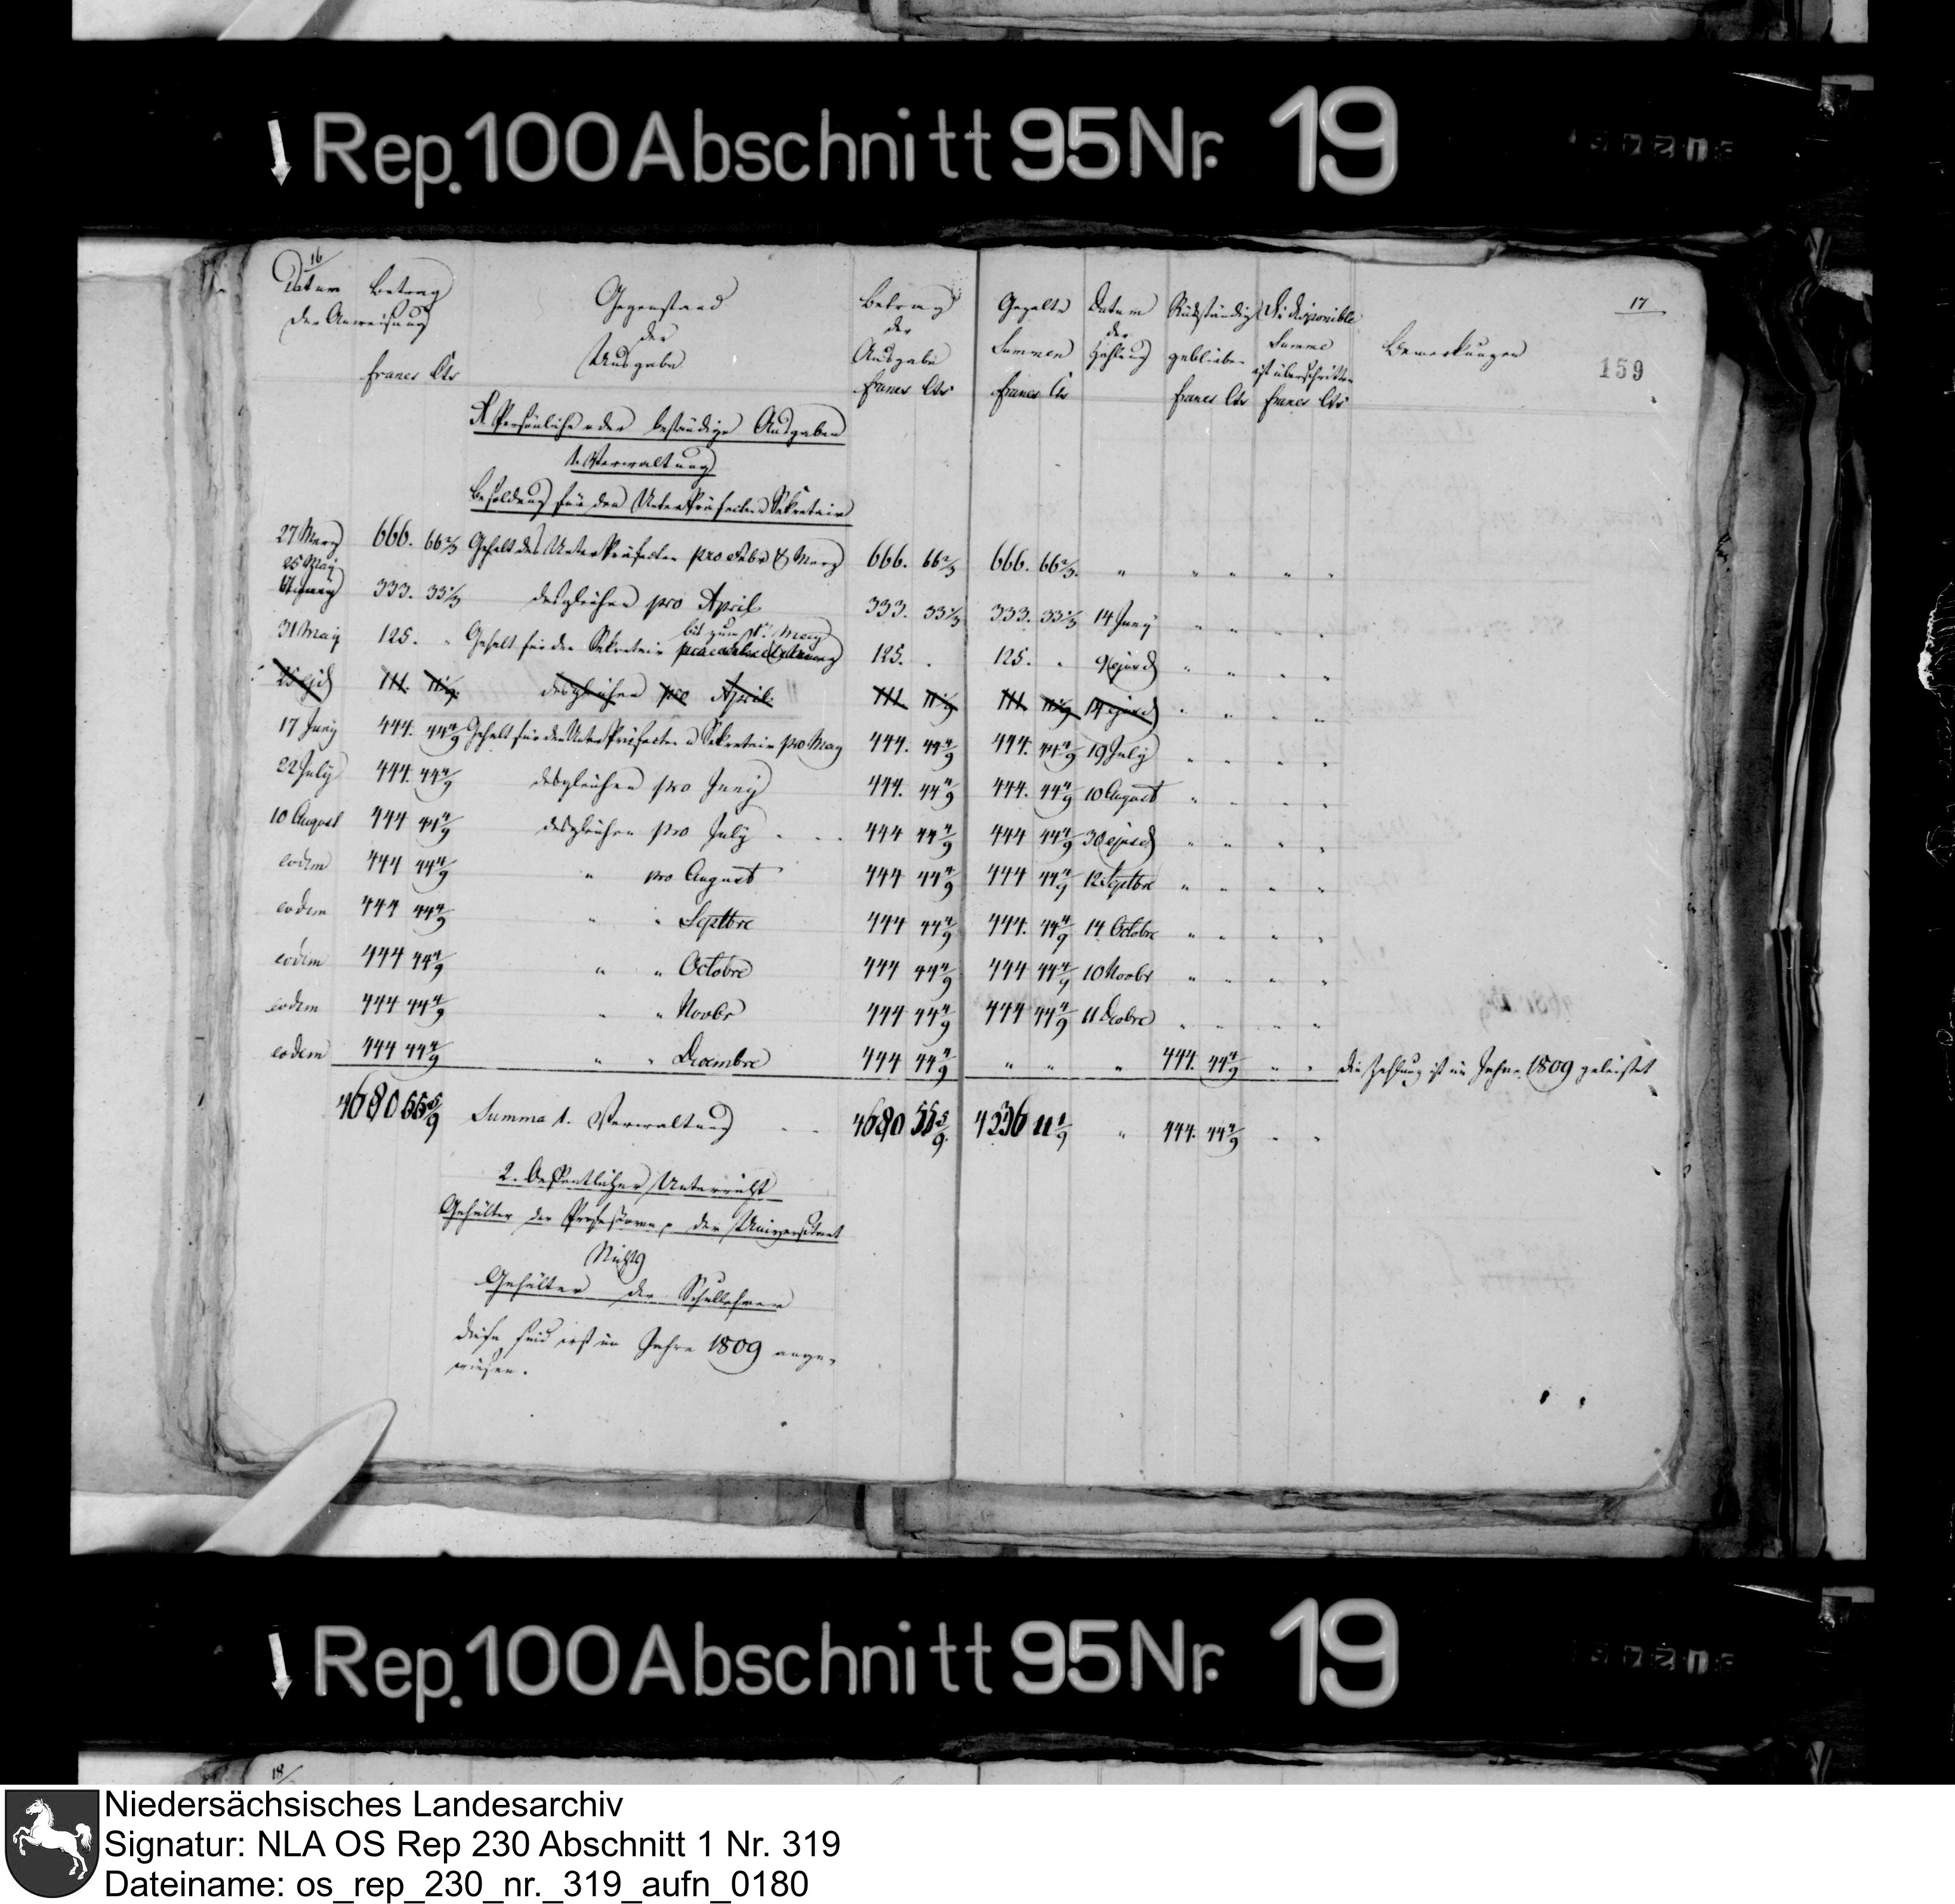 Rep. 100 Abschnitt 95 Nr. 19
16
17
159
Datum der Anweisung
Betrag
francs Cts
Gegenstand
der
Ausgabe
Betrag
der
Ausgabe
francs Cts
Gezalte
Summen
francs Cts
Datum
der
Zahlung
Rückständig
geblieben
francs Cts
Die disponible
Summe
ist überschritten
francs Cts
Bemerkungen
A. Persönliche oder beständige Ausgaben
1. Verwaltung
Besoldung für den Unterpräfecten u Sekretair
27 Merz 666. 66 2/3 Gehalt des Unterpräfecten pro Febr & Merz 666. 66 2/3 666. 66 2/3 " " " " "
25 May 333. 33 1/3 desgleichen pro April 333. 33 1/3 333. 33 1/3 14 Juny " " " "
31 May 125. " Gehalt für den Sekretair bis zum 1t. May 125. " 125. " 9 ejusd " " " "
25 ejd 111. 11 1/9 desgleichen pro April 111. 11 1/9 111. 11 1/9 14 ejusd " " " "
17 Juny 444. 44 4/9 Gehalt für den Unterpräfecten u Sekretair pro May 444. 44 4/9 444. 44 4/9 19 July " " " "
22 July 444. 44 4/9 desgleichen pro Juny 444. 44 4/9 444. 44 4/9 10 August " " " "
10 August 444 44 4/9 desgleichen pro July 444 44 4/9 444 44 4/9 30 ejusd " " " "
eodem 444 44 4/9 " pro August 444 44 4/9 444 44 4/9 12 Septbre " " " "
eodem 444 44 4/9 " " Septbre 444 44 4/9 444. 44 4/9 14 Octobre " " " "
eodem 444 44 4/9 " " Octobre 444 44 4/9 444 44 4/9 10 Novbr " " " "
eodem 444 44 4/9 " " Novbr 444 44 4/9 444 44 4/9 11 Decbre " " " "
eodem 444 44 4/9 " " Decembre 444 44 4/9 " " " 444. 44 4/9 " " die Zahlung ist im Jahre 1809 geleistet
4680 55 5/9 Summa 1. Verwaltung 4680 55 5/9 4236 11 1/9 " 444. 44 4/9 " "
2. Oeffentlicher Unterricht
Gehälter der Professoren der Universitaet
Nichts
Gehälter der Schullehrer
diese sind erst im Jahre 1809 ange-
wiesen.
Rep. 100 Abschnitt 95 Nr. 19
18
Niedersächsisches Landesarchiv
Signatur: NLA OS Rep 230 Abschnitt 1 Nr. 319
Dateiname: os_rep_230_nr._319_aufn_0180